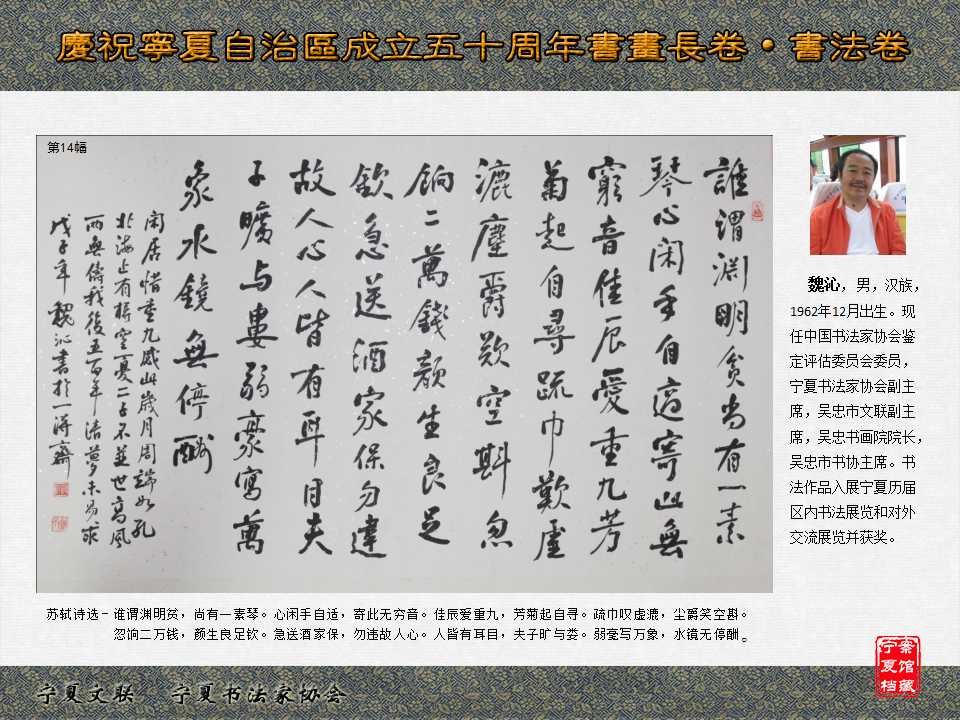 慶祝寧夏自治區成立五十周年書畫長卷·書法卷
第14幅
誰謂淵明貧尚有一素
琴心闲手自適寄此無
窮音佳辰愛重九芳
菊起自尋疏巾歎虛
漉塵爵歎空斟忽
餉二萬錢顏生良足
欽急送酒家保勿違
故人心人皆有耳目夫
子曠与婁弱豪寫萬
象水鏡無停酬
闲居惜重九感此歲月周端如孔
北海止有樽空憂二子不並世高風
兩無儔我後五百年清夢未易求
戊子年魏沁書於一得齋
魏沁，男，汉族，
1962年12月出生。现
任中国书法家协会鉴
定评估委员会委员，
宁夏书法家协会副主
席，吴忠市文联副主
席，吴忠书画院院长，
吴忠市书协主席。书
法作品入展宁夏历届
区内书法展览和对外
交流展览并获奖。
苏轼诗选－谁谓渊明贫，尚有一素琴。心闲手自适，寄此无穷音。佳辰爱重九，芳菊起自寻。疏巾叹虚漉，尘爵笑空斟。
忽饷二万钱，颜生良足钦。急送酒家保，勿违故人心。人皆有耳目，夫子旷与娄。弱毫写万象，水镜无停酬。
宁夏文联 宁夏书法家协会
宁夏档案馆藏